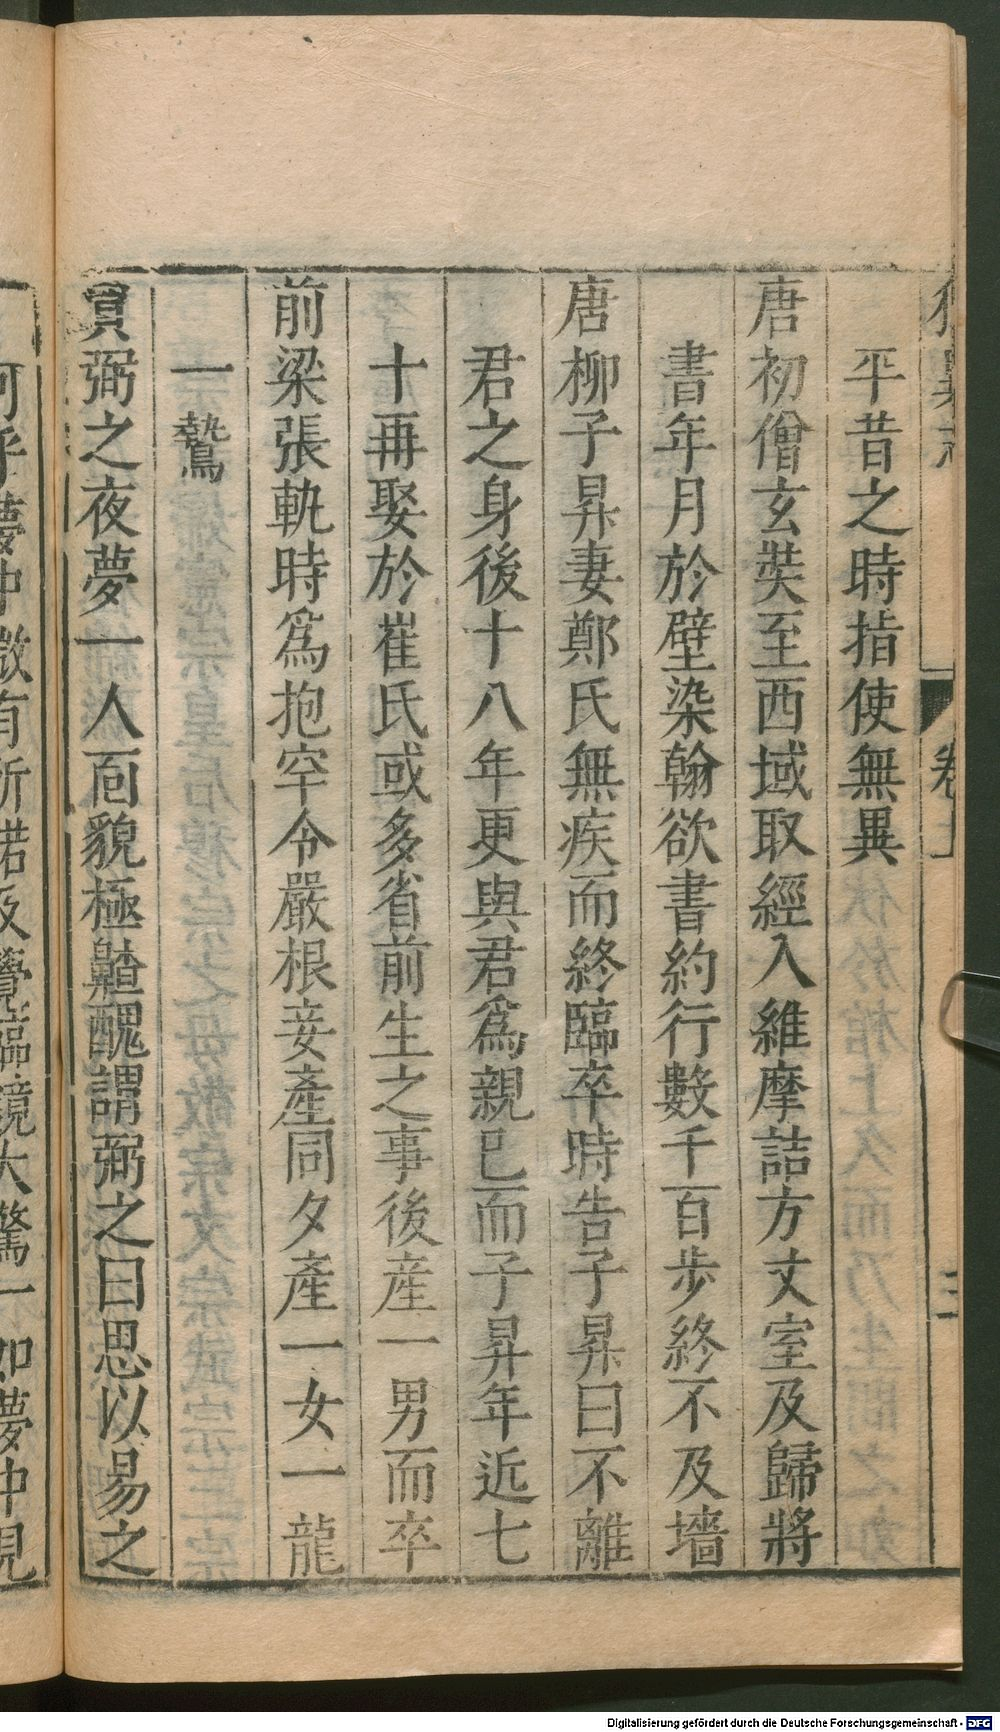 平昔之時指使無異
唐初僧玄奘至西域取經入維摩詰方丈室及歸將
書年月於壁染翰欲書約行數千百步終不及墻
唐柳子昇妻鄭氏無疾而終臨卒時告子昇曰不離
君之身後十八年更與君爲親已而子昇年近七
十再娶於崔氏或多省前生之事後産一男而卒
前梁張軌時爲抱罕令嚴根妾產同夕產一女一龍
一鷙
賈弼之夜夢一人面貌極齄醜謂弼之曰思以易之
可乎夢中微有所諾及覺臨鏡大驚一如夢中見
卷上
三
Digitalisierung gefördert durch die Deutsche Forschungsgemeinschaft - DFG